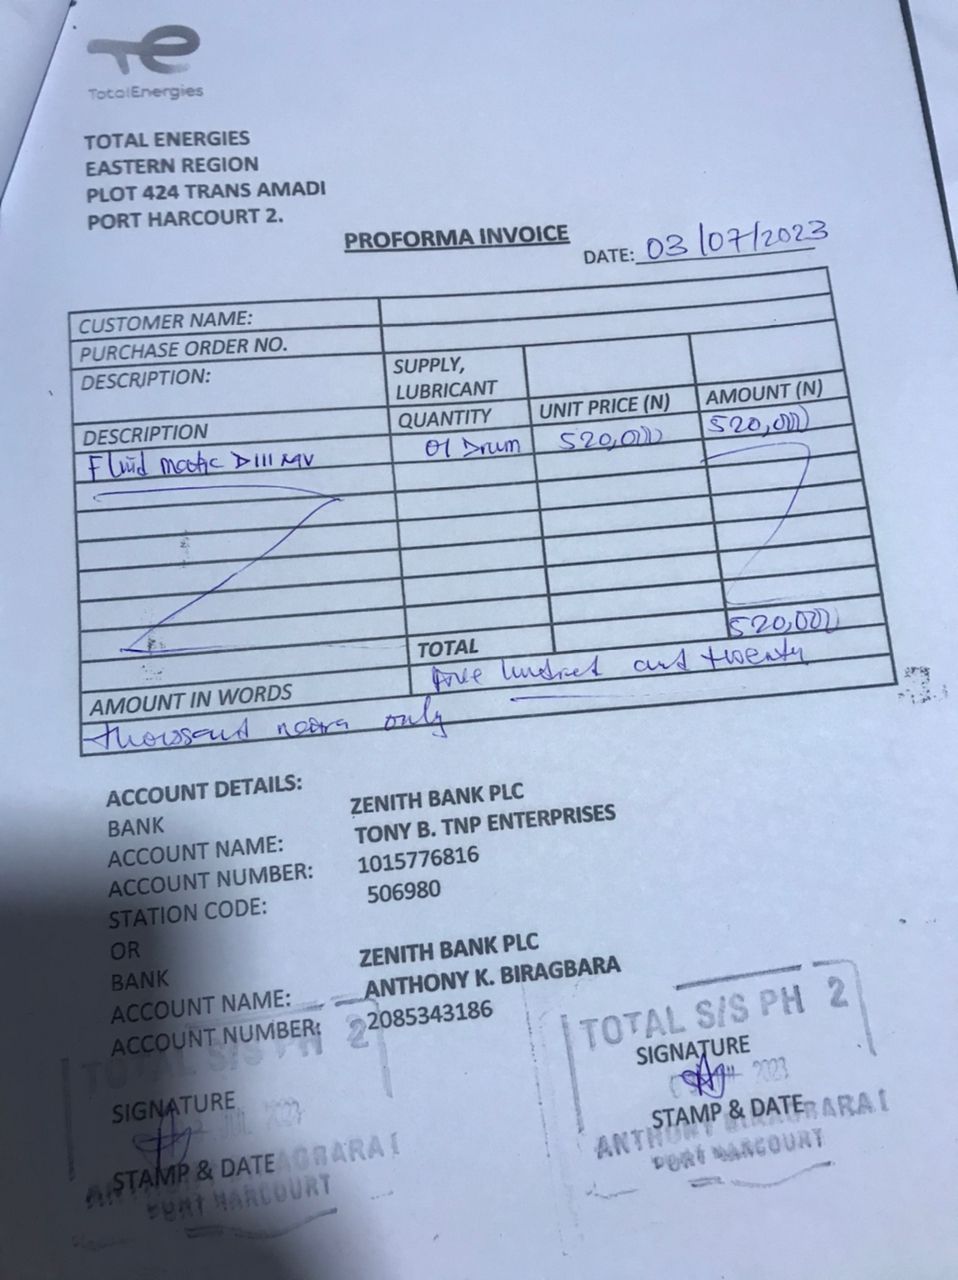 TotalEnergies
TOTAL ENERGIES
EASTERN REGION
PLOT 424 TRANS AMADI
PORT HARCOURT 2.
PROFORMA INVOICE
DATE: 03/07/2023
CUSTOMER NAME:
PURCHASE ORDER NO.
DESCRIPTION: SUPPLY, LUBRICANT
DESCRIPTION QUANTITY UNIT PRICE (N) AMOUNT (N)
Fluid matic DIII MV 01 Drum 520,000 520,000
TOTAL 520,000
AMOUNT IN WORDS five hundred and twenty
thousand naira only
ACCOUNT DETAILS:
BANK ZENITH BANK PLC
ACCOUNT NAME: TONY B. TNP ENTERPRISES
ACCOUNT NUMBER: 1015776816
STATION CODE: 506980
OR
BANK ZENITH BANK PLC
ACCOUNT NAME: ANTHONY K. BIRAGBARA
ACCOUNT NUMBER: 2085343186
TOTAL S/S PH 2 TOTAL S/S PH 2
SIGNATURE SIGNATURE
JUL 2023 2023
STAMP & DATE STAMP & DATE
ANTHONY BIRAGBARA
PORT HARCOURT PORT HARCOURT